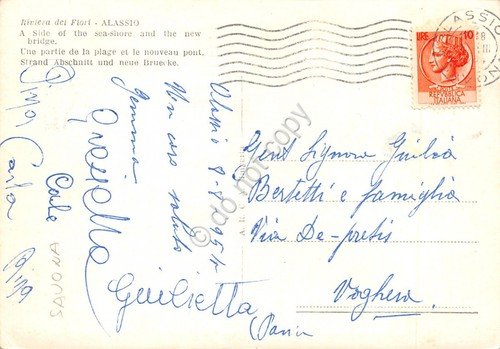 Riviera dei Fiori - ALASSIO
A Side of the sea-shore and the new
bridge.
Une partie de la plage et le nouveau pont.
Strand Abschnitt und neue Bruecke.
LIRE 10
REPVBBLICA
ITALIANA
ALASSIO
Alassio 9-8-954
Un caro saluto
Gemma
Graziella
Giulietta
Pina
Carla
Carlo
SAVONA
Gent Signora Giulia
Bertetti e famiglia
Via De-pretis
Voghera
(Pavia)
do not copy